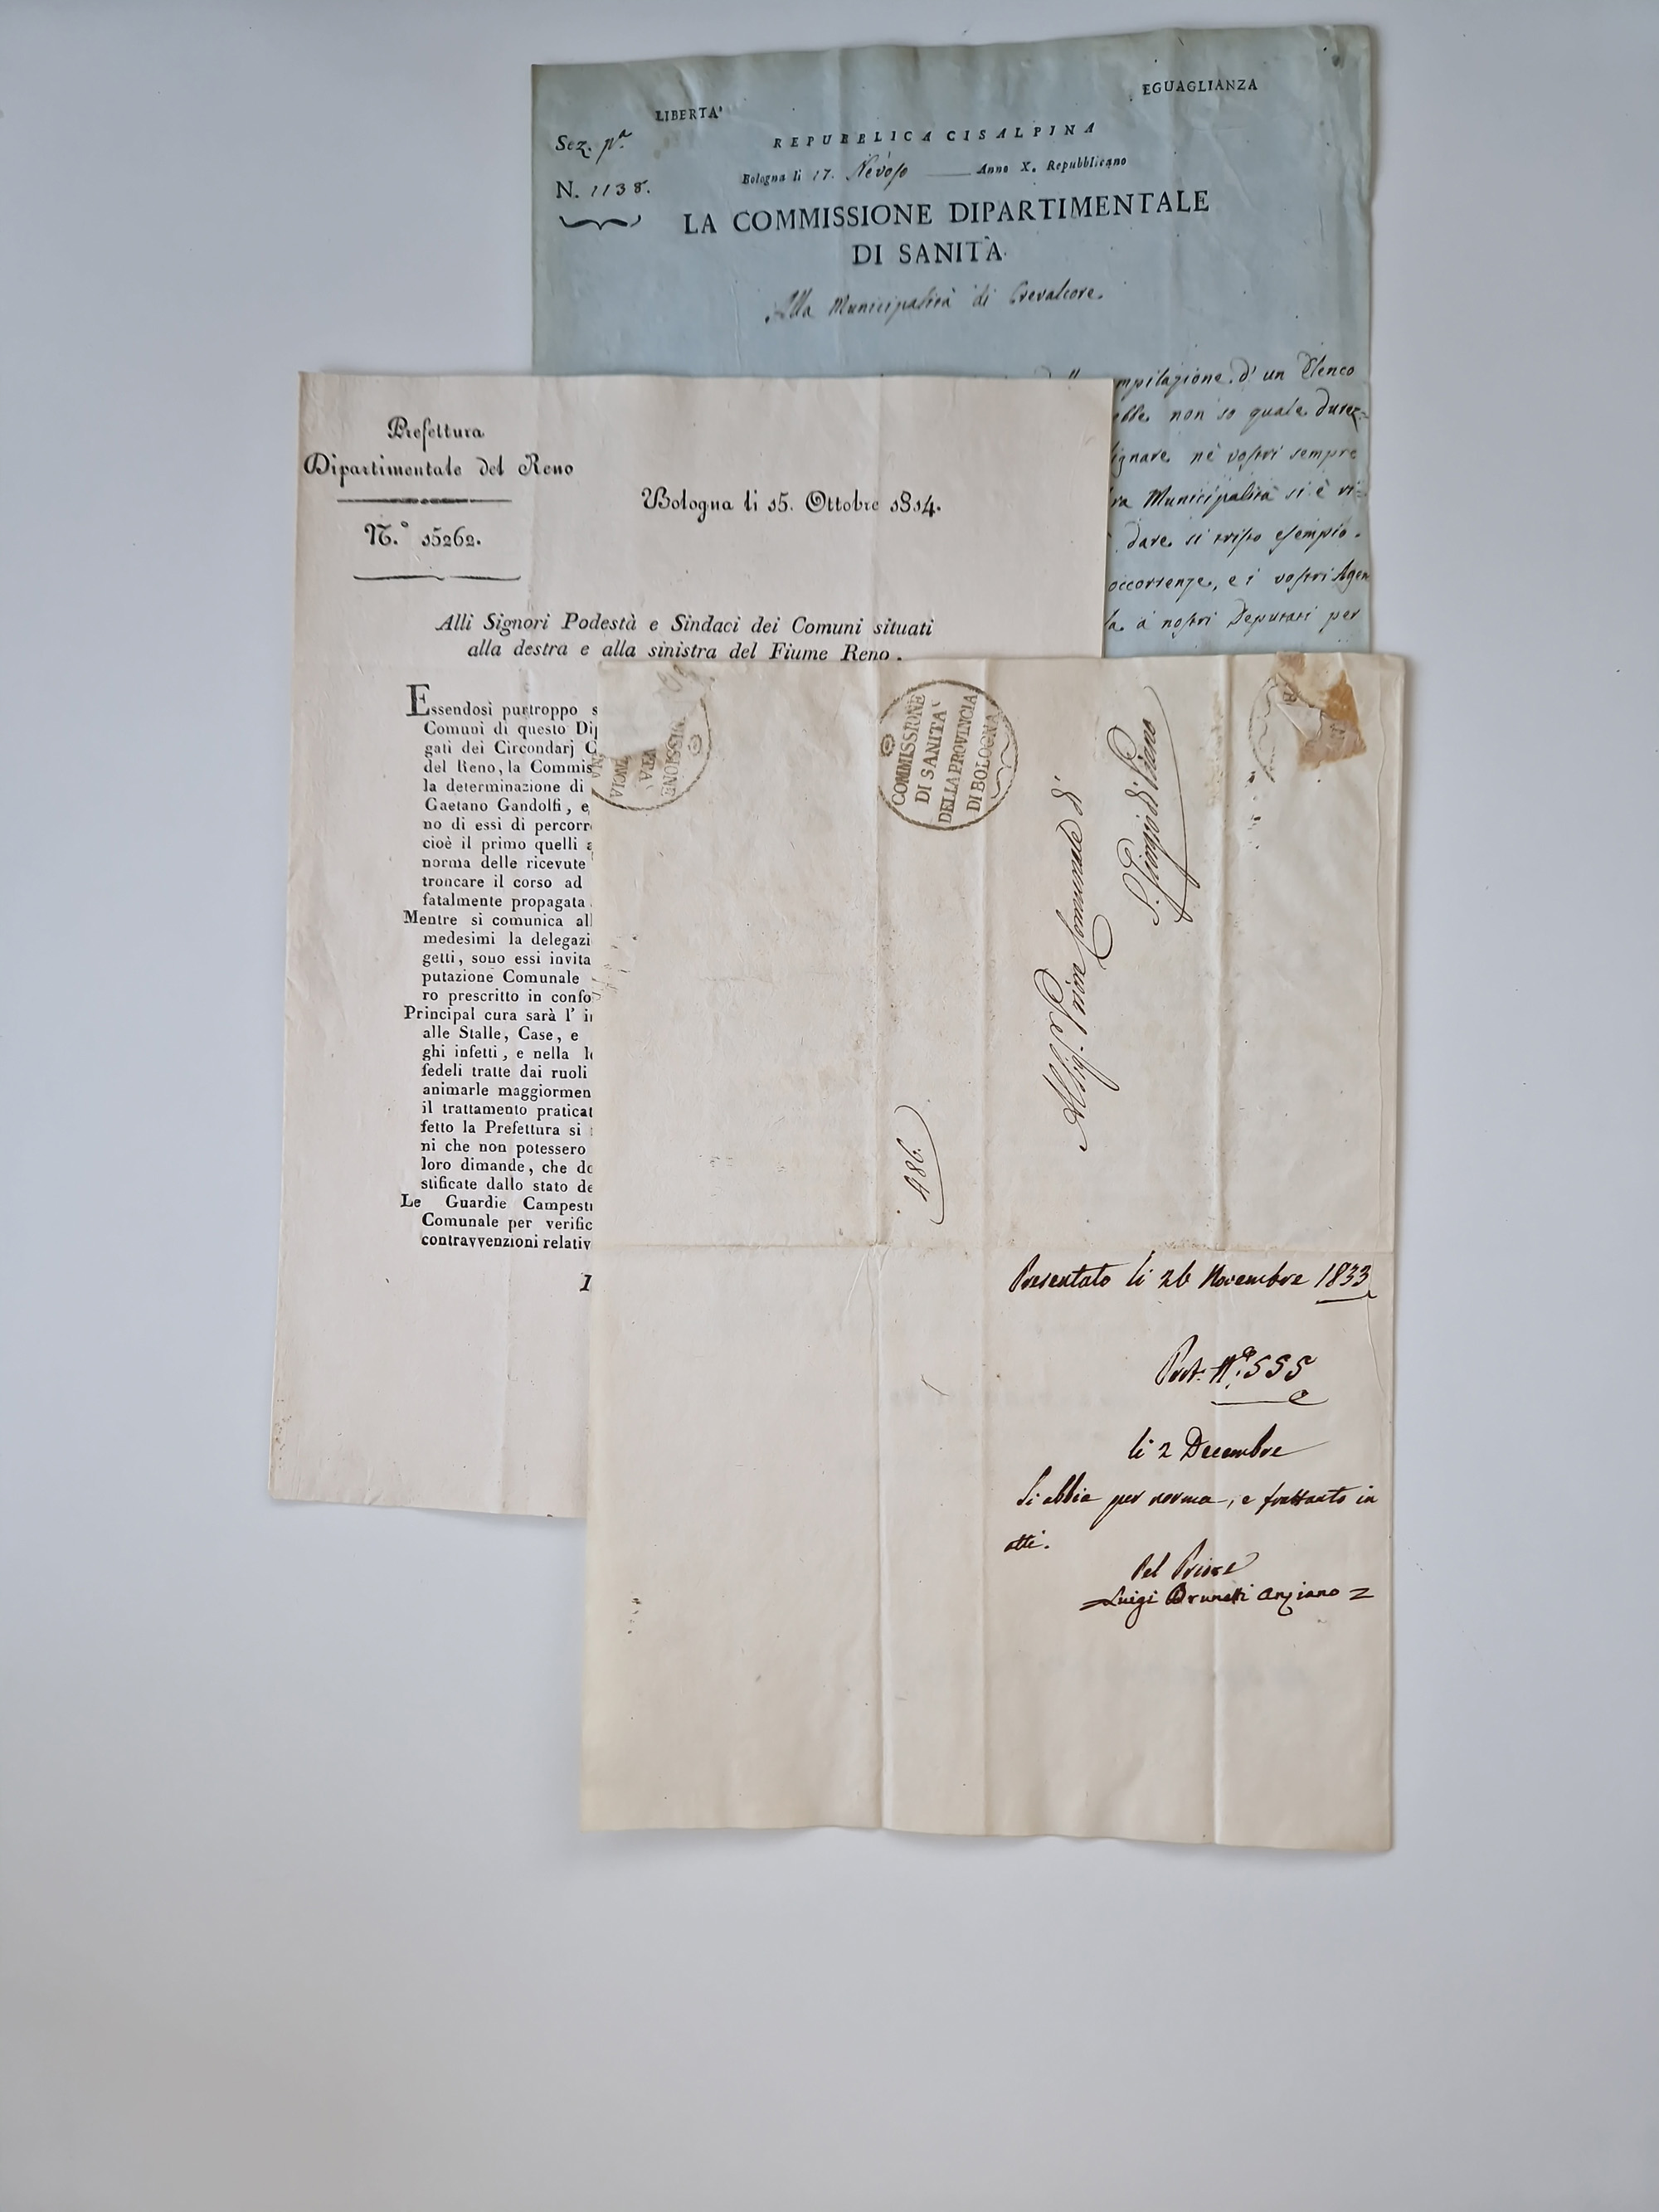 LIBERTA'
EGUAGLIANZA
Sez. pa.
REPUBBLICA CISALPINA
N. 1138.
Bologna li 17. Nevoso Anno X. Repubblicano
LA COMMISSIONE DIPARTIMENTALE
DI SANITÀ
Alla Municipalità di Crevalcore.
mpilazione d' un Elenco
ebbe non so quale durez=
ignare nè vostri sempre
ra Municipalità si è vi=
dare si tristo esempio.
occorrenze, e i vostri Agen
la a nostri Deputati per
Prefettura
Dipartimentale del Reno
N.° 15262.
Bologna li 15. Ottobre 1814.
Alli Signori Podestà e Sindaci dei Comuni situati
alla destra e alla sinistra del Fiume Reno.
Essendosi purtroppo s
Comuni di questo Dip
gati dei Circondarj C
del Reno, la Commis
la determinazione di
Gaetano Gandolfi, e
no di essi di percorr
cioè il primo quelli a
norma delle ricevute
troncare il corso ad
fatalmente propagata
Mentre si comunica all
medesimi la delegazi
getti, sono essi invita
putazione Comunale
ro prescritto in confo
Principal cura sarà l' i
alle Stalle, Case, e
ghi infetti, e nella l
fedeli tratte dai ruoli
animarle maggiormen
il trattamento praticat
fetto la Prefettura si
ni che non potessero
loro dimande, che do
stificate dallo stato de
Le Guardie Campest
Comunale per verific
contravvenzioni relativ
I
MISSIONE
ITA'
INCIA
COMMISSIONE
DI SANITA'
DELLA PROVINCIA
DI BOLOGNA
Al Sig. Prior Comunale di
S. Giorgio di Piano
486.
Presentato li 26 Novembre 1833
Prot. N.° 555
li 2 Decembre
Si abbia per norma, e frattanto in
atti.
Pel Priore
Luigi Brunetti Anziano